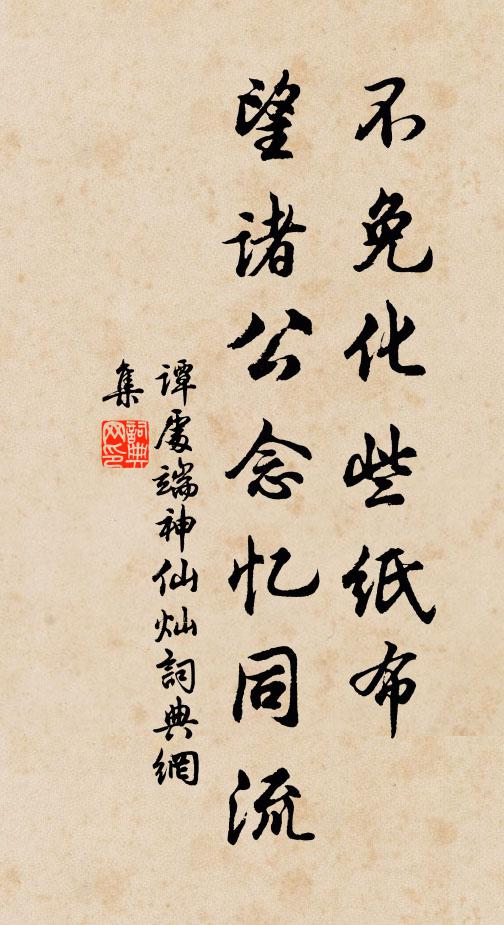 不免化些纸布
望诸公念忆同流
谭处端神仙灿詞典網
集
詞典
网印